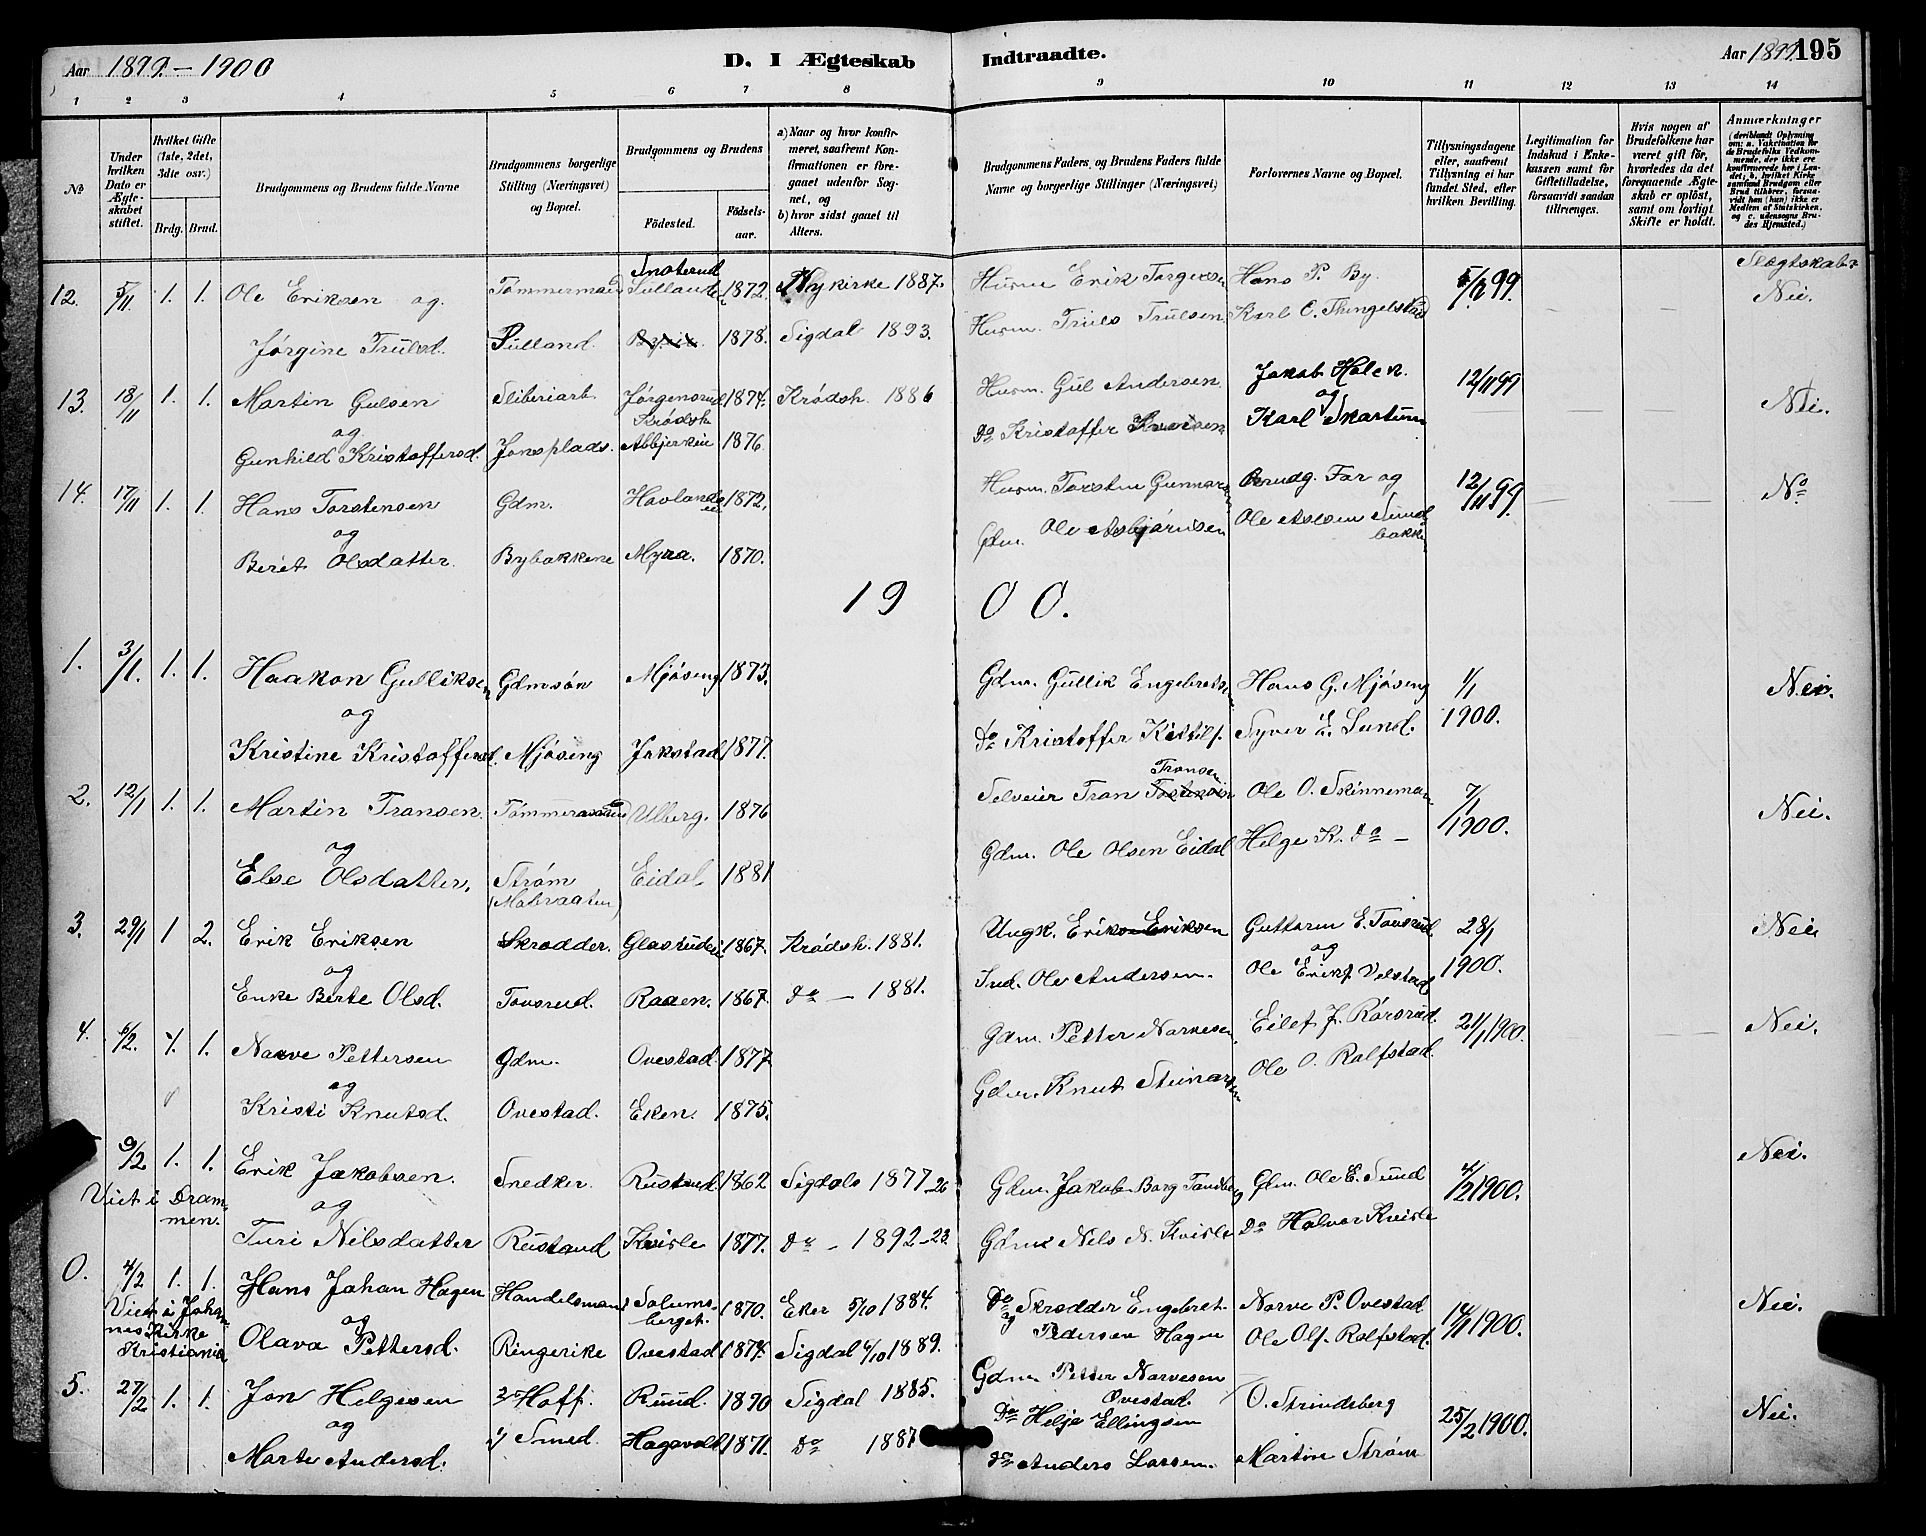 Aar 1899.-1900
D. I Ægteskab Indtraadte.
Aar 1899. 195
1 2 3 4 5 6 7 8 9 10 11 12 13 14
No
Under hvilken Dato er Ægteskabet stiftet.
Hvilket Gifte (1ste, 2det, 3die osv.)
Brdg. Brud.
Brudgommens og Brudens fulde Navne
Brudgommens borgerlige Stilling (Næringsvei) og Bopæl.
Brudgommens og Brudens
Fødested.
Fødselsaar.
a) Naar og hvor konfirmeret, saafremt Konfirmationen er foregaaet udenfor Sognet, og
b) hvor sidst gaaet til Alters.
Brudgommens Faders, og Brudens Faders fulde Navne og borgerlige Stillinger (Næringsvei)
Forlovernes Navne og Bopæl.
Tillysningsdagene eller, saafremt Tillysning ei har fundet Sted, efter hvilken Bevilling.
Legitimation for Indskud i Enkekassen samt for Giftetilladelse, forsaavidt saadan tiltrænges.
Hvis nogen af Brudefolkene har været gift før, hvorledes da det foregaaende Ægteskab er opløst, samt om lovligt Skifte er holdt.
Anmærkninger
(deriblandt Oplysning om: a. Vakcination for de Brudefolks Vedkommende, der ikke ere konfirmerede her i Landet; b. hvilket Kirkesamfund Brudgom eller Brud tilhører, forsaavidt han (hun) ikke er Medlem af Statskirken, og c. udensogns Brudes Hjemsted.)
Slægtskab?
12. 5/11 1. 1. Ole Eriksen og Tømmermand Snoterud Sulland 1872. kirke 1887. Husm. Erik Torgersen Hans P. By. 99. Nei.
Jørgine Trulsd. Sulland. 1878. Sigdal 1893. Husm. Truls Trulsen Karl O. Thingelstad
13. 18/11 1. 1. Martin Gulsen Sliberiarb. Jørgensrud Krødsh. 1874. Krødsh. 1886 Husm. Gul Andersen. Jakob Holen. 12/11 99 Nei.
og og
Gunhild Kristoffersd. Jonsplads. 1876. Do Kristoffer Karl Skartum
14. 17/11 1. 1. Hans Torstensen Gdm. Hovlandsei 1872. Husm. Torsten Gunnars Brudg. Far og 12/11 99. No
og
Beret Olsdatter. Bybakkene Myra. 1870. Gdm. Ole Asbjørnsen Ole Aslesen Sundbakke
1900.
1. 3/1. 1. 1. Haakon Gulliksen Gdmsøn Mjøseng 1873. Gdm. Gullik Engebretsen Hans G. Mjøseng 1/1 1900. Nei.
og
Kristine Kristoffersd. Mjøseng Jokstad 1877. Do Kristoffer Kittils. Syver E. Lund.
2. 12/1 1. 1. Martin Transen. Tømmermand Ulberg. 1876 Selveier Tran Transen Ole O. Skinneman 7/1 1900. Nei.
og
Else Olsdatter. Strøm Eidal 1881 Gdm. Ole Olsen Eidal Helge K. Do -
3. 29/1 1 2. Erik Eriksen Skrædder. Glasrudei 1867. Krødsh. 1881. Ungk. Erik Eriksen Guttorm E. Tovsrud. 28/1 1900. Nei
og og
Enke Berte Olsd. Tovsrud. Raaen. 1867. Do - 1881. Ind. Ole Andersen. Ole Eriks. Velstad
4. 6/2. 1. 1. Narve Pettersen Gdm. Ovestad. 1877 Gdm. Petter Narvesen Eilef J. Rørsrud. 21/1 1900. Nei.
og
Kristi Knutsd. Ovestad. Eken. 1875. Gdm. Knut Steinarsen Ole O. Rolfstad.
9/2 1. 1. Erik Jakobsen. Snedker. Rustand 1862 Sigdals 1877 - 26 Gdm. Jakob Borg. Tandberg Gdm. Ole E. Sund 4/2 1900. Nei.
Viet i Drammen. og
Turi Nilsdatter Rustand Kvisle 1877. Do - 1892 - 23. Gdm. Nils N. Kvisle Do Halvor Kvisle
0. 4/2 1. 1. Hans Johan Hagen Handelsmand Solumsberget. 1870. Eker 5/10 1884. Do Skrædder Engebret Pedersen Hagen Narve P. Ovestad 14/1 1900. Nei.
Viet i Johannes Kirke Kristiania og og
Olava Pettersd. Ringerike Ovestad 1874. Sigdal 6/10 1889. Gdm. Petter Narvesen Ovestad. Ole Ols. Rolfstad.
5. 27/2 1. 1. Jon Helgesen Hoff. Ruud. 1870 Sigdal 1885. Do Helje Ellingsen O. Strindsberg 25/2 1900. Nei.
og
Marte Andersd. Smed. Hagavolt 1871. Do 1887 Do Anders Larsen. Martin Strøm